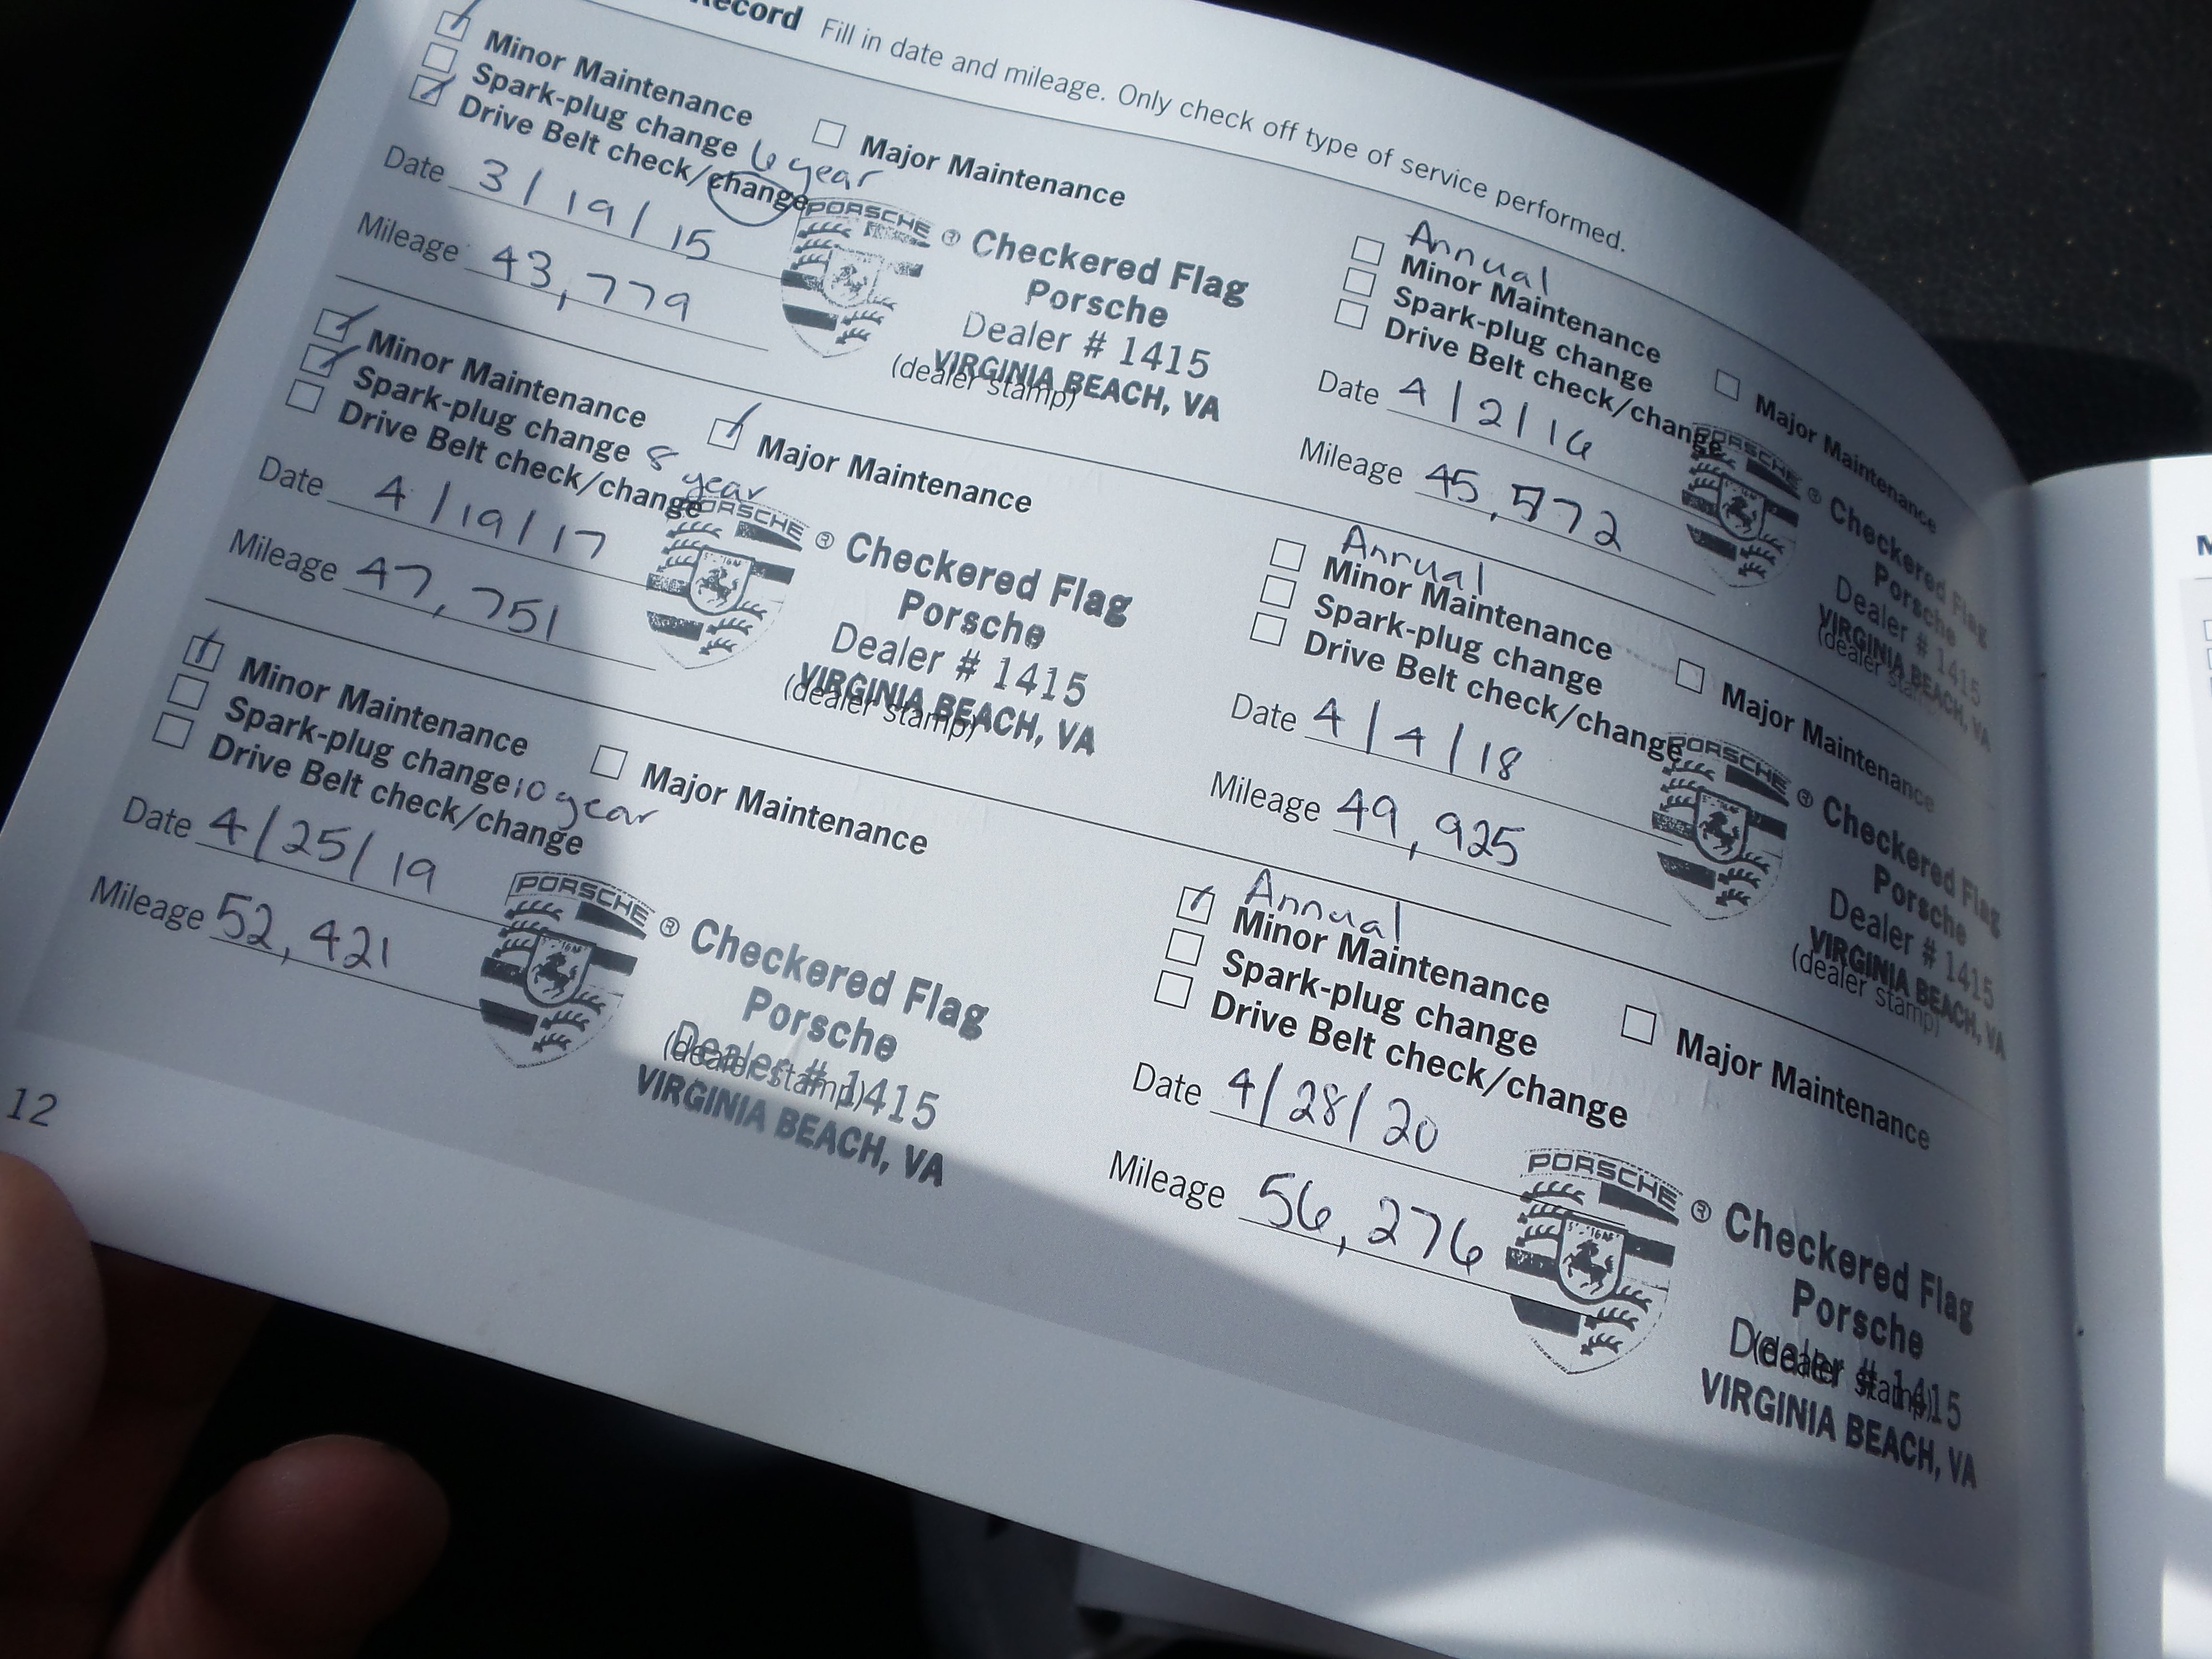 Record Fill in date and mileage. Only check off type of service performed.
Minor Maintenance
Spark-plug change 6 year
Drive Belt check/change
Major Maintenance
Date 3/19/15
Mileage 43,779
PORSCHE
® Checkered Flag
Porsche
Dealer # 1415
VIRGINIA BEACH, VA
(dealer stamp)
Annual
Minor Maintenance
Spark-plug change
Drive Belt check/change
Major Maintenance
Date 4/2/16
Mileage 45,572
PORSCHE
® Checkered Flag
Porsche
Dealer # 1415
VIRGINIA BEACH, VA
(dealer stamp)
Minor Maintenance
Spark-plug change 8 year
Drive Belt check/change
Major Maintenance
Date 4/19/17
Mileage 47,751
PORSCHE
® Checkered Flag
Porsche
Dealer # 1415
VIRGINIA BEACH, VA
(dealer stamp)
Annual
Minor Maintenance
Spark-plug change
Drive Belt check/change
Major Maintenance
Date 4/4/18
Mileage 49,925
PORSCHE
® Checkered Flag
Porsche
Dealer # 1415
VIRGINIA BEACH, VA
(dealer stamp)
Minor Maintenance
Spark-plug change 10 year
Drive Belt check/change
Major Maintenance
Date 4/25/19
Mileage 52,421
PORSCHE
® Checkered Flag
Porsche
Dealer # 1415
(dealer stamp)
VIRGINIA BEACH, VA
Annual
Minor Maintenance
Spark-plug change
Drive Belt check/change
Major Maintenance
Date 4/28/20
Mileage 56,276
PORSCHE
® Checkered Flag
Porsche
Dealer # 1415
(dealer stamp)
VIRGINIA BEACH, VA
12